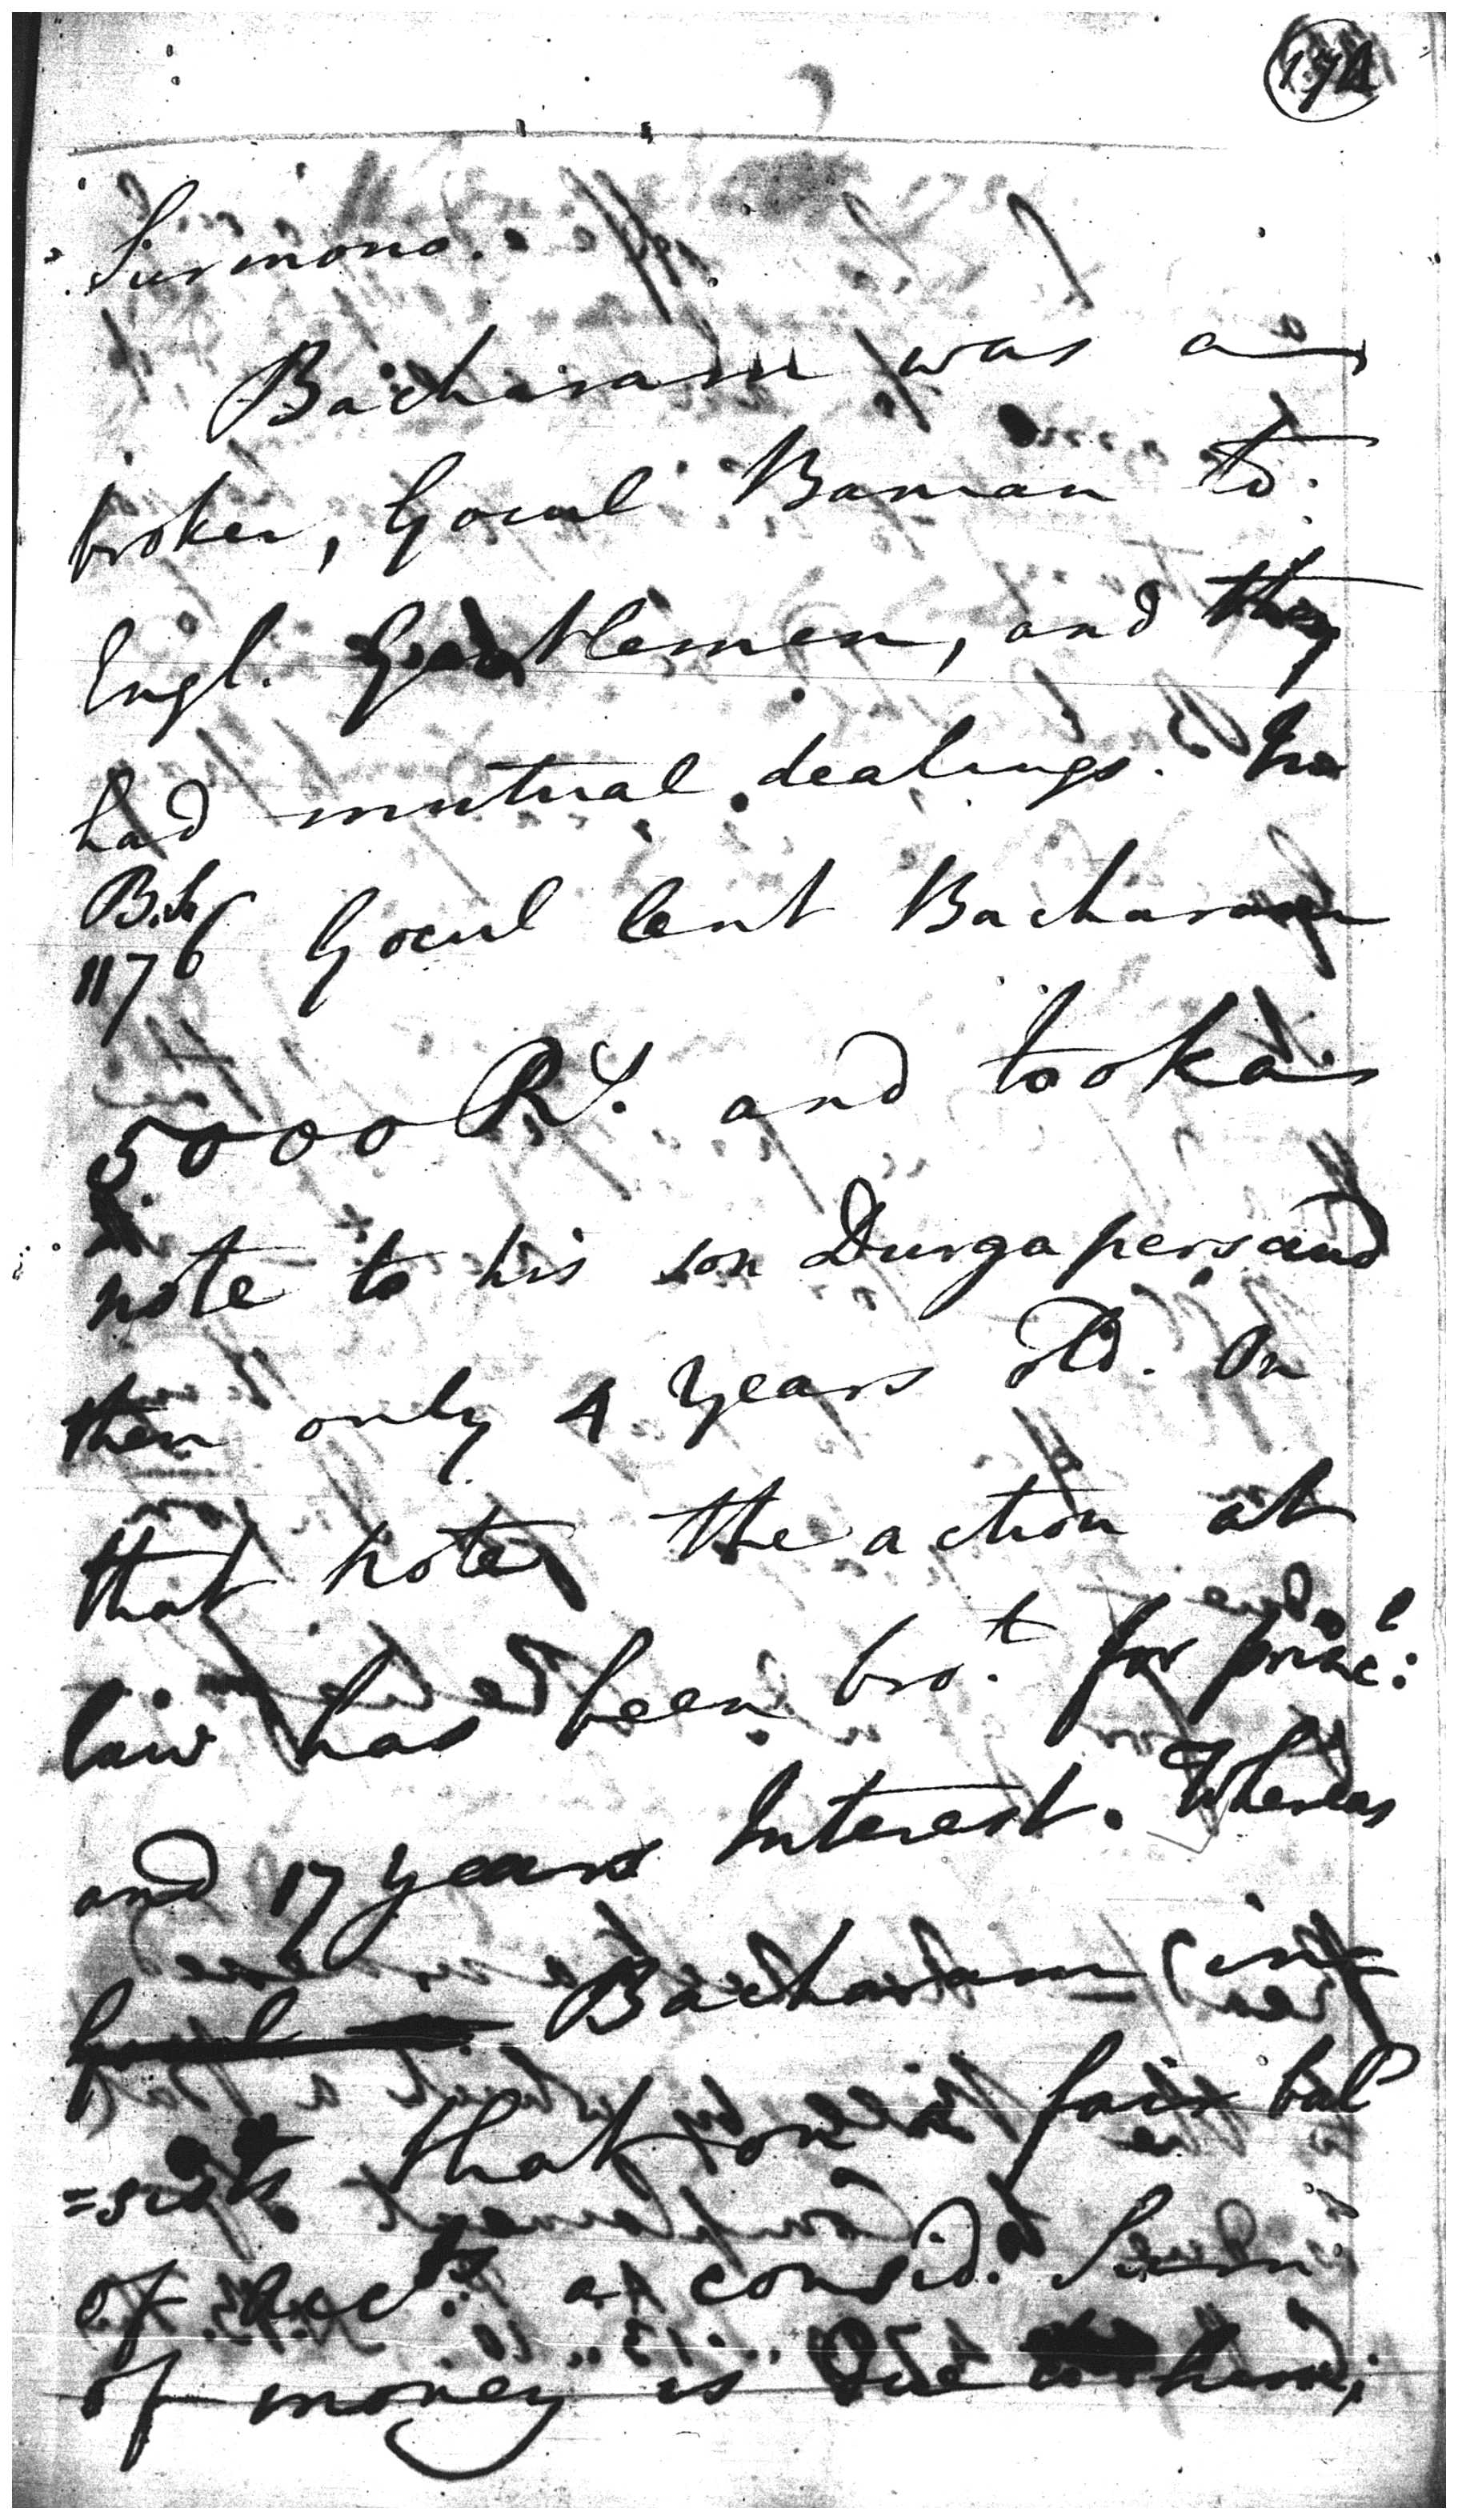 174
Surmono.
Bacharam was a
broker, Gocul Banian to
Engl. Gentlemen, and they
had mutual dealings. In
B.S.
1176 Gocul lent Bacharam
5000 Rs. and took a
note to his son Durgapersaud
then only 4 years old. On
that note the action at
law has been bro.t for princ.l
and 17 years Interest. Whereas
Bacharam in
=sists that on a fair bal
of accts a consid. Sum
of money is due to him;